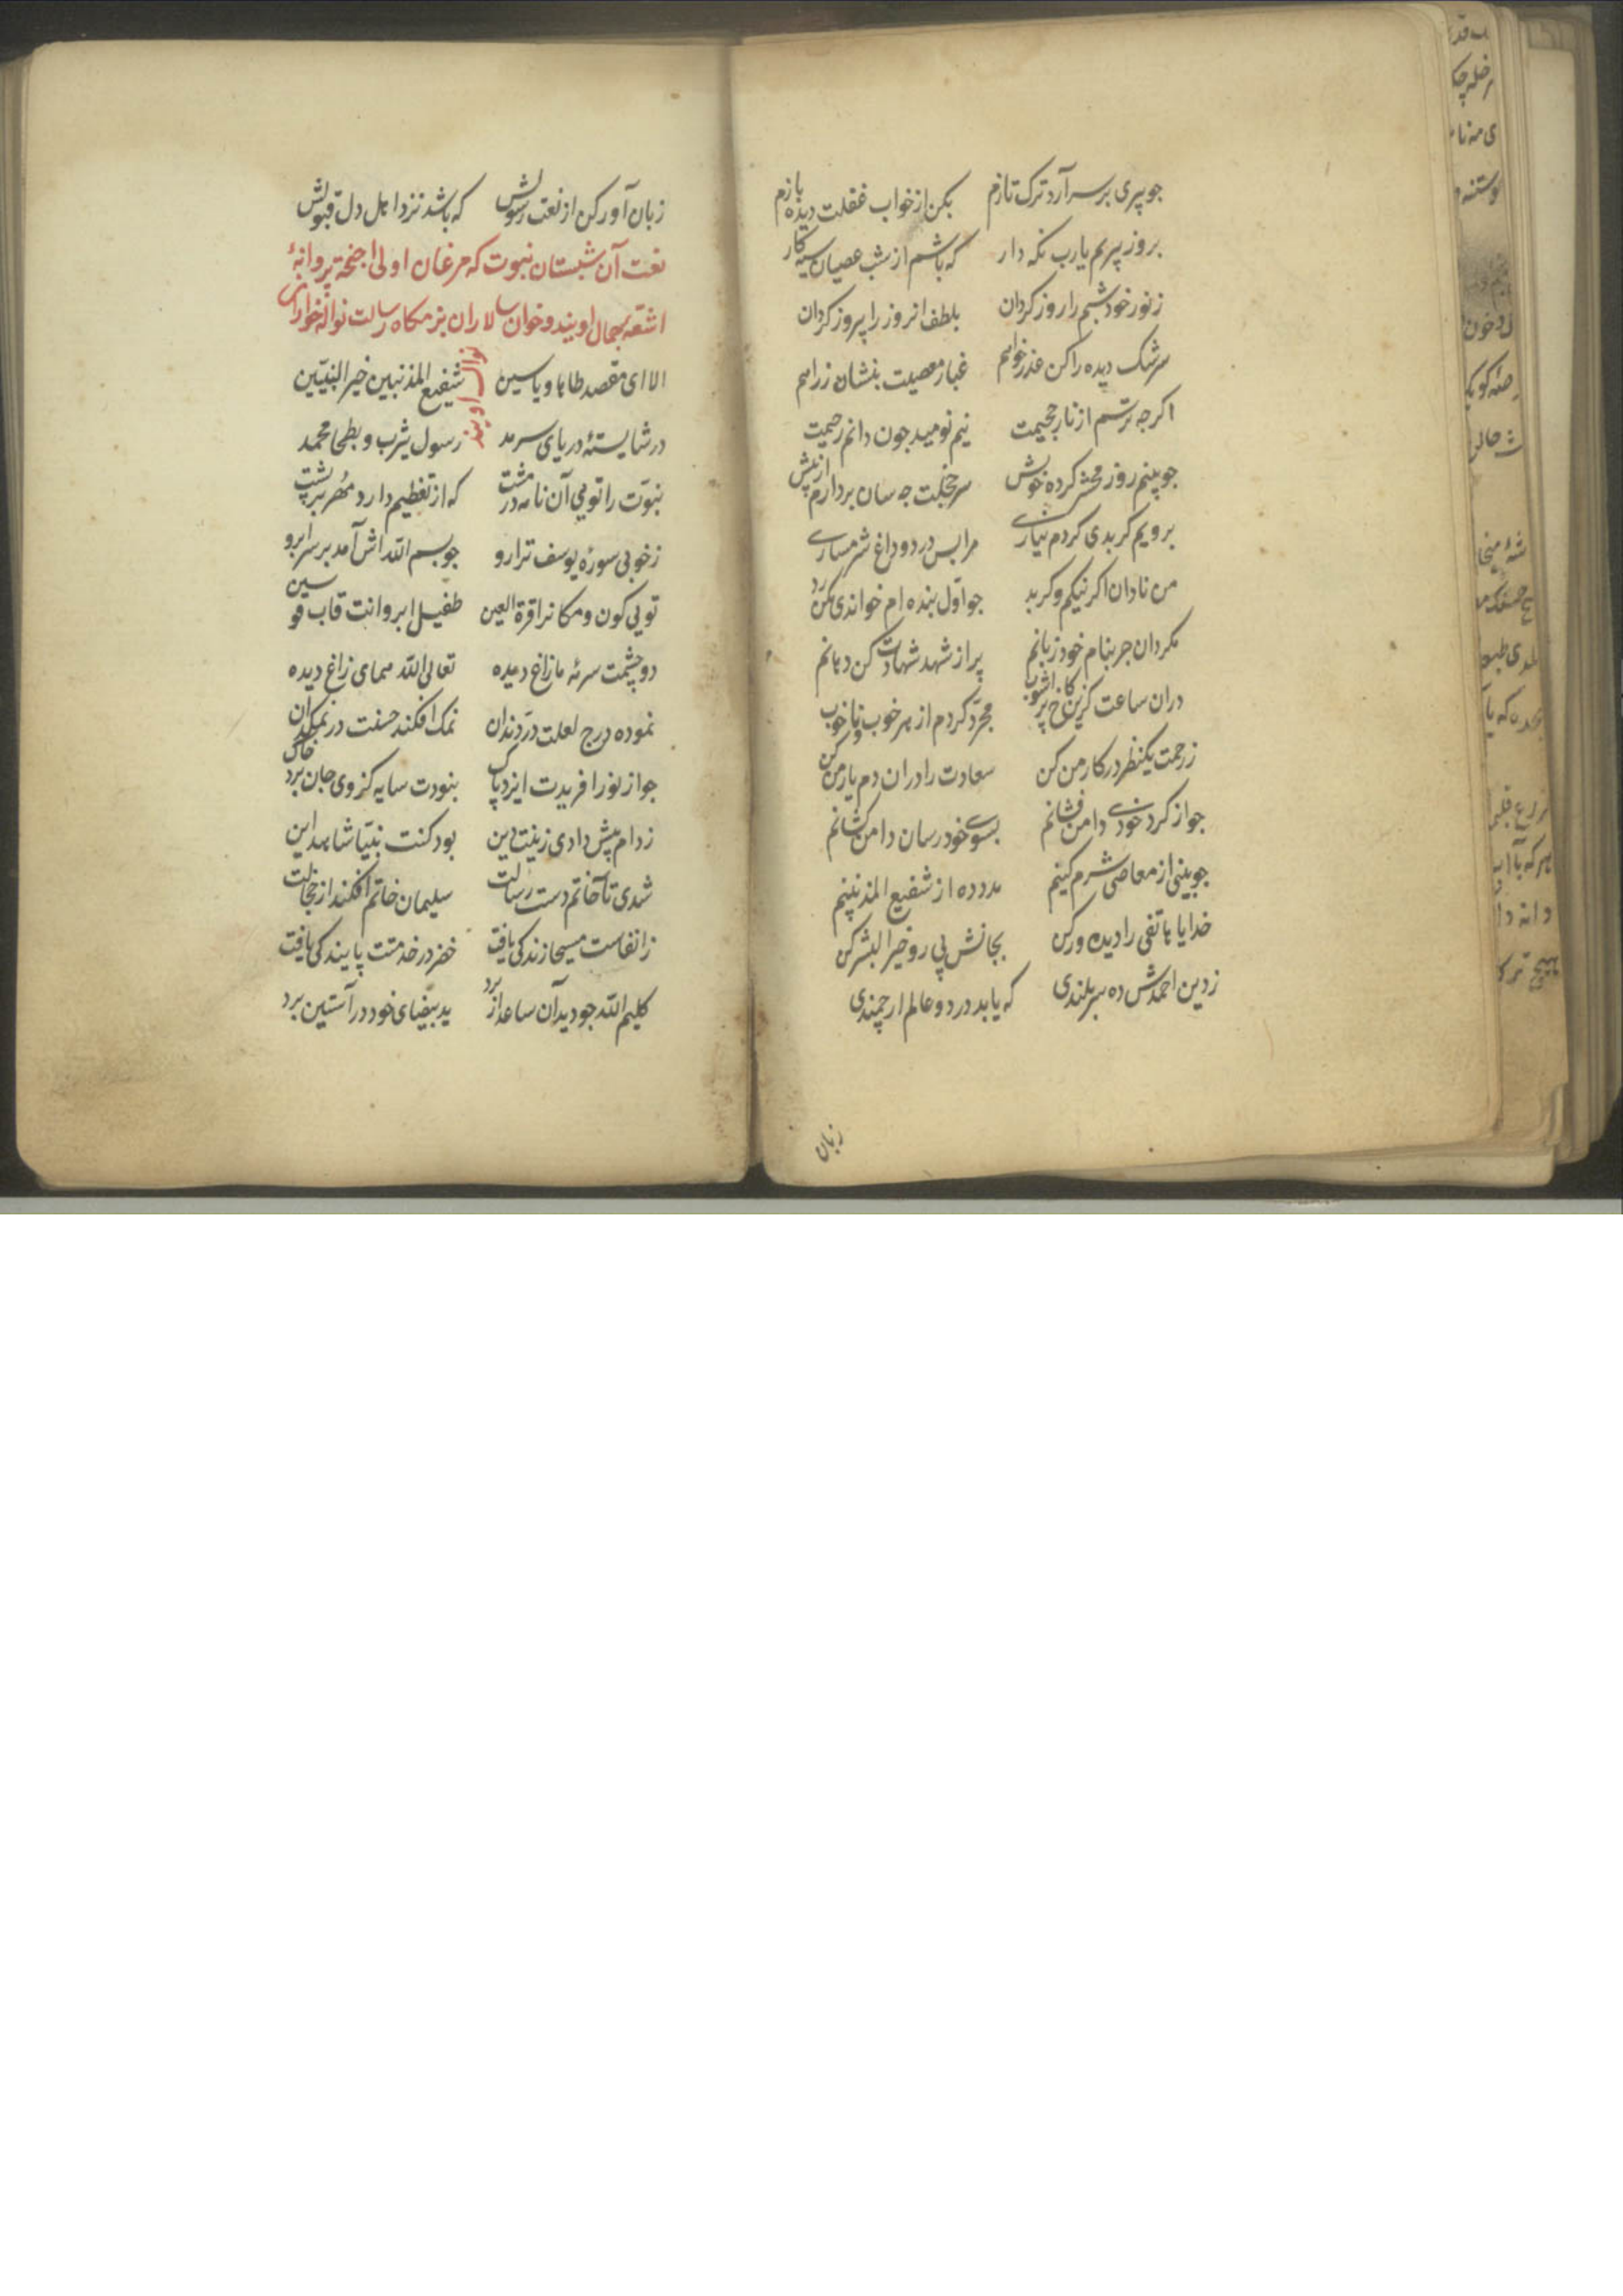 جو پیری بر سر آرد ترک تازم بکن از خواب غفلت دیده بازم
بروز پیریم یارب نکه دار که باشم از شب عصیان سیه کار
ز نور خود شبم را روز کردان بلطف امروز را پیروز کردان
سرشک دیده را کن عذر خواهم غبار معصیت بنشان ز راهم
اکر جه ترسم از نار جحیمت نیم نومید جون دانم رحیمت
جو بینم روز محشر کرده خویش سر خجلت جه سان بردارم از پیش
برویم کر بدی کردم نیاری مرا بس درد و داغ شرمساری
من نادان اکر نیکم و کر بد جو اول بنده ام خواندی مکن رد
مکردان جز بنام خود زبانم پر از شهد شهادت کن دهانم
دران ساعت کزین کاخ پر اشوب مجرّد کردم از هر خوب و ناخوب
ز رحمت یکنظر در کار من کن سعادت را دران دم یار من کن
جو از کرد خودی دامن فشانم بسوی خود رسان دامن کشانم
جو بینی از معاصی شرمکینم مدد ده از شفیع المذنبینم
خدایا هاتفی را دیده ور کن بجانش پی رو خیر البشر کن
ز دین احمدش ده سربلندی که یابد در دو عالم ارجمندی
زبان
زبان آور کن از نعت رسولش که باشد نزد اهل دل قبولش
نعت آن شبستان نبوت که مرغان اولی اجنحة پروانهٔ
اشعّه جمال اویند و خوان سالاران بزمکاه رسالت نواله خواران
نوال اویند
الا ای مقصد طاها و یاسین شفیع المذنبین خیر النبیّین
در شایستهٔ دریای سرمد رسول یثرب و بطحا محمد
نبوّت را تویی آن نامه در مشت که از تعظیم دارد مُهر بر پشت
ز خوبی سورهٔ یوسف ترا رو جو بسم اللّه اش آمد بر سر ابرو
تویی کون و مکانرا قرة العین طفیل ابروانت قاب قوسین
دو چشمت سرمهٔ مازاغ دیده تعالی اللّه همای زاغ دیده
نموده درج لعلت درّ دندان نمک افکند حسنت در نمکدان
جو از نور افریدت ایزد پاک نبودت سایه کز وی جان برد خاک
ز ادم پیش دادی زینت دین بود کنت نبیّا شاهد این
شدی تا خاتم دست رسالت سلیمان خاتم افکند از خجالت
ز انفاست مسیحا زندکی یافت خضر در خدمتت پایندکی یافت
کلیم اللّه جو دید آن ساعد از برد ید بیضای خود در آستین برد